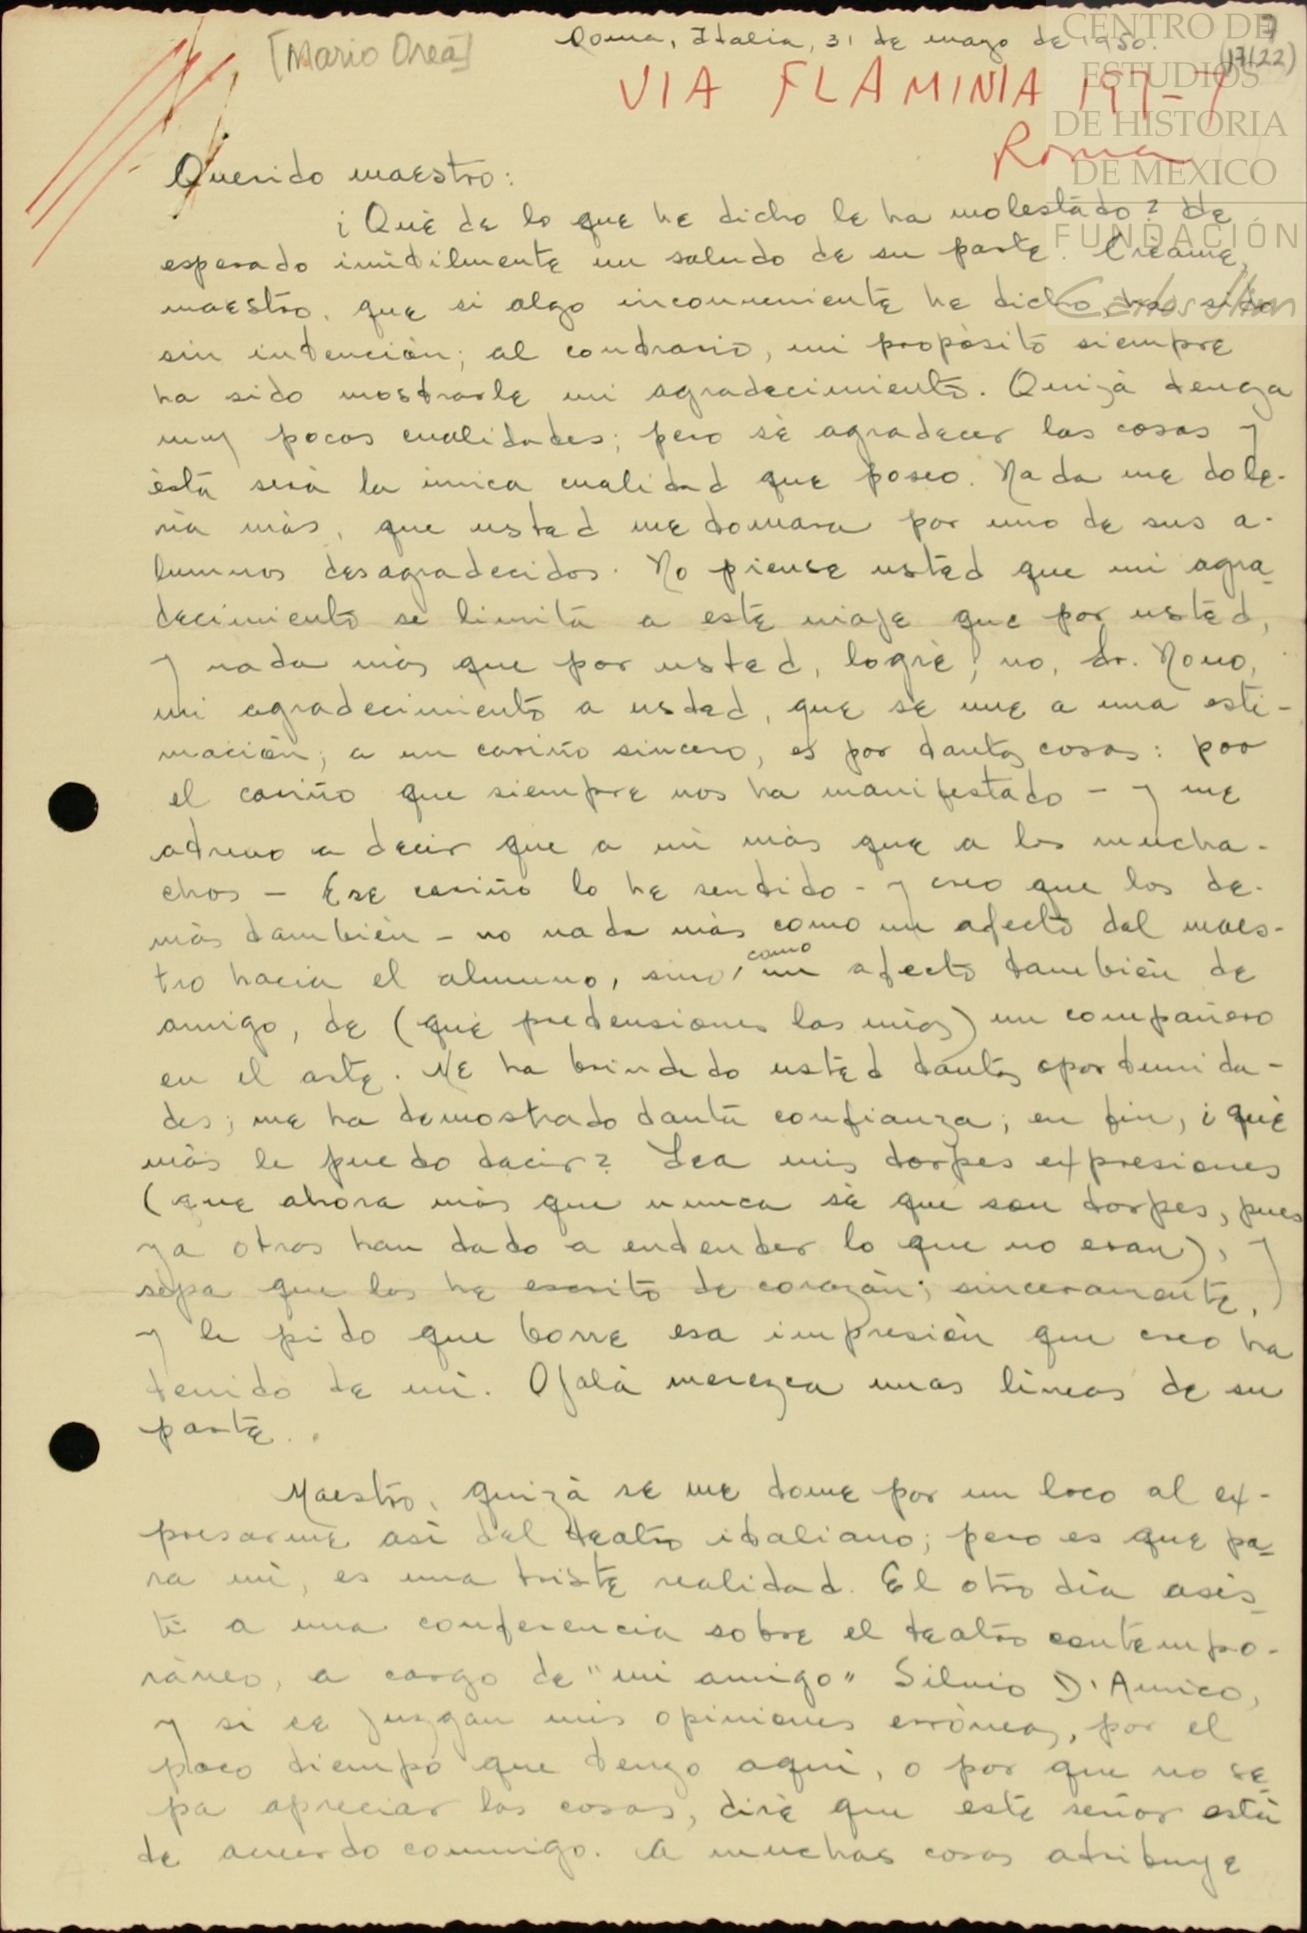 [Mario Orea]
Roma, Italia, 31 de mayo de 1950.
7
(17122)
VIA FLAMINIA 197-7
Roma
CENTRO DE
ESTUDIOS
DE HISTORIA
DE MEXICO
FUNDACIÓN
Carlos Slim
Querido maestro:
¿Qué de lo que he dicho le ha molestado? He
esperado inútilmente un saludo de su parte. Créame,
maestro, que si algo inconveniente he dicho, ha sido
sin intención; al contrario, mi propósito siempre
ha sido mostrarle mi agradecimiento. Quizá tenga
muy pocas cualidades; pero sé agradecer las cosas y
ésta será la única cualidad que poseo. Nada me dole-
ría más, que usted me tomara por uno de sus a-
lumnos desagradecidos. No piense usted que mi agra-
decimiento se limita a este viaje que por usted,
y nada más que por usted, logré; no, Sr. Novo,
mi agradecimiento a usted, que se une a una esti-
mación; a un cariño sincero, es por tantas cosas: por
el cariño que siempre nos ha manifestado - y me
atrevo a decir que a mí más que a los mucha-
chos - Ese cariño lo he sentido - y creo que los de-
más también - no nada más como un afecto del maes-
tro hacia el alumno, sino como un afecto también de
amigo, de (qué pretensiones las mías) un compañero
en el arte. Me ha brindado usted tantas oportunida-
des; me ha demostrado tanta confianza; en fin, ¿qué
más le puedo decir? Lea mis torpes expresiones
(que ahora más que nunca sé que son torpes, pues
ya otros han dado a entender lo que no eran), y
sepa que las he escrito de corazón; sinceramente,
y le pido que borre esa impresión que creo ha
tenido de mí. Ojalá merezca unas líneas de su
parte..
Maestro, quizá se me tome por un loco al ex-
presarme así del teatro italiano; pero es que pa-
ra mí, es una triste realidad. El otro día asis-
tí a una conferencia sobre el teatro contempo-
ráneo, a cargo de "mi amigo" Silvio D'Amico,
y si se juzgan mis opiniones erróneas, por el
poco tiempo que tengo aquí, o por que no se-
pa apreciar las cosas, diré que este señor está
de acuerdo conmigo. A muchas cosas atribuye